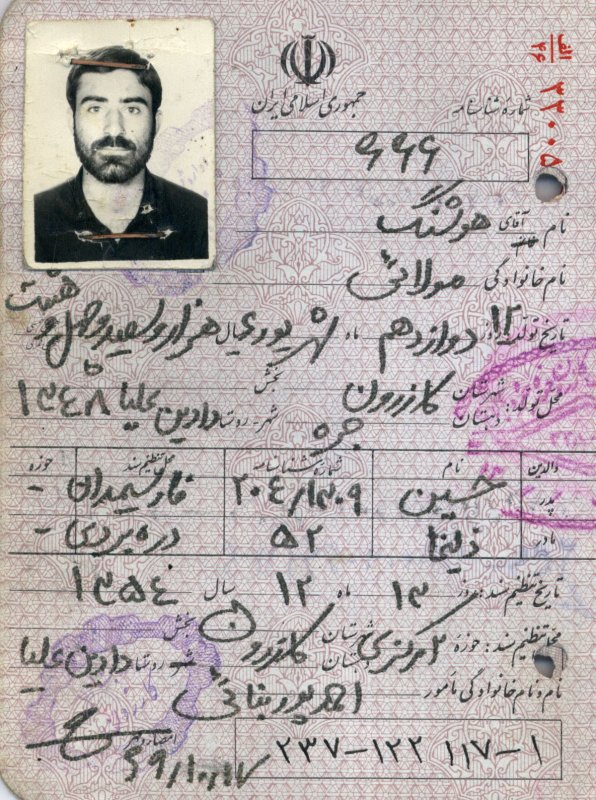 الف
۴۶
۳۳۰۰۵
جمهوری اسلامی ایران
شماره شناسنامه
۶۶۶
نام آقای هوشنگ
نام خانوادگی مولائی
تاریخ تولد: روز ۱۲ دوازدهم ماه شهریور سال هزار و سیصد و چهل و هشت
محل تولد: شهرستان کازرون بخش
دهستان جره شهر- روستا دادین علیا ۱۳۴۸
والدین نام شماره شناسنامه محل تنظیم سند حوزه
پدر حسین ۲۰۴/۱۳۰۹ -
مادر ۵۲ -
تاریخ تنظیم سند: روز ۱۳ ماه ۱۲ سال ۱۳۵۴
محل تنظیم سند: حوزه ۲ مرکزی شهرستان کازرون بخش
دهستان شهر- روستا دادین علیا
نام و نام خانوادگی مأمور احمد پوربنائی
۶۹/۱۰/۱۷
۲۳۷-۱۲۲ ۱۱۷-۱